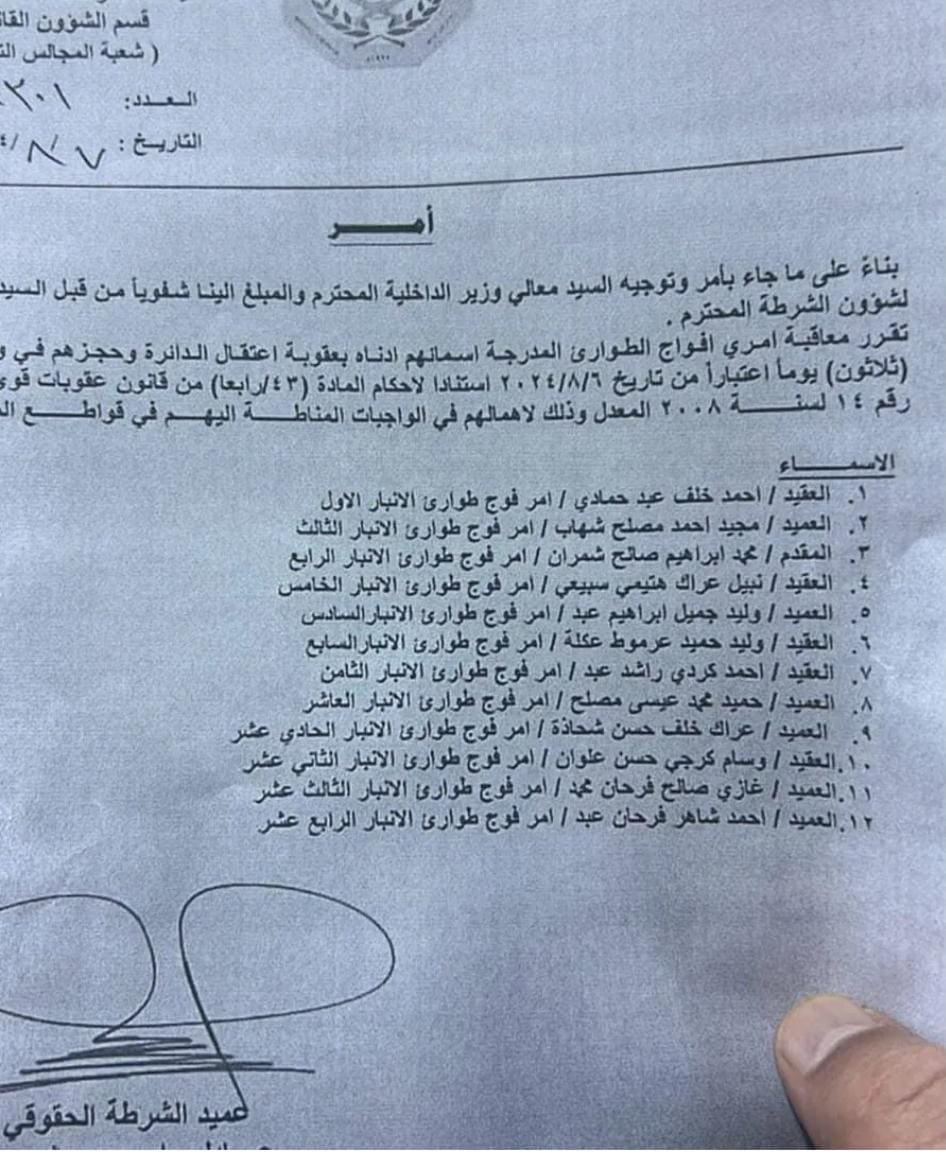 قسم الشؤون
( شعبة المجالس
العدد:
التاريخ : ٧ / ٨ /
أمر
بناءً على ما جاء بأمر وتوجيه السيد معالي وزير الداخلية المحترم والمبلغ الينا شفوياً من قبل السيد
لشؤون الشرطة المحترم .
تقرر معاقبة امري افواج الطوارئ المدرجة اسمائهم ادناه بعقوبة اعتقال الدائرة وحجزهم في
(ثلاثون) يوماً اعتباراً من تاريخ ٢٠٢٤/٨/٦ استنادا لاحكام المادة (٤٣/رابعا) من قانون عقوبات
رقم ١٤ لسنة ٢٠٠٨ المعدل وذلك لاهمالهم في الواجبات المناطة اليهم في قواطع
الاسماء
١. العقيد / احمد خلف عبد حمادي / امر فوج طوارئ الانبار الاول
٢. العميد / مجيد احمد مصلح شهاب / امر فوج طوارئ الانبار الثالث
٣. المقدم / محمد ابراهيم صالح شمران / امر فوج طوارئ الانبار الرابع
٤. العقيد / نبيل عراك هتيمي سبيعي / امر فوج طوارئ الانبار الخامس
٥. العميد / وليد جميل ابراهيم عبد / امر فوج طوارئ الانبارالسادس
٦. العقيد / وليد حميد عرموط عكلة / امر فوج طوارئ الانبارالسابع
٧. العقيد / احمد كردي راشد عبد / امر فوج طوارئ الانبار الثامن
٨. العميد / حميد محمد عيسى مصلح / امر فوج طوارئ الانبار العاشر
٩. العميد / عراك خلف حسن شحاذة / امر فوج طوارئ الانبار الحادي عشر
١٠.العقيد / وسام كرجي حسن علوان / امر فوج طوارئ الانبار الثاني عشر
١١.العميد / غازي صالح فرحان محمد / امر فوج طوارئ الانبار الثالث عشر
١٢.العميد / احمد شاهر فرحان عبد / امر فوج طوارئ الانبار الرابع عشر
عميد الشرطة الحقوقي